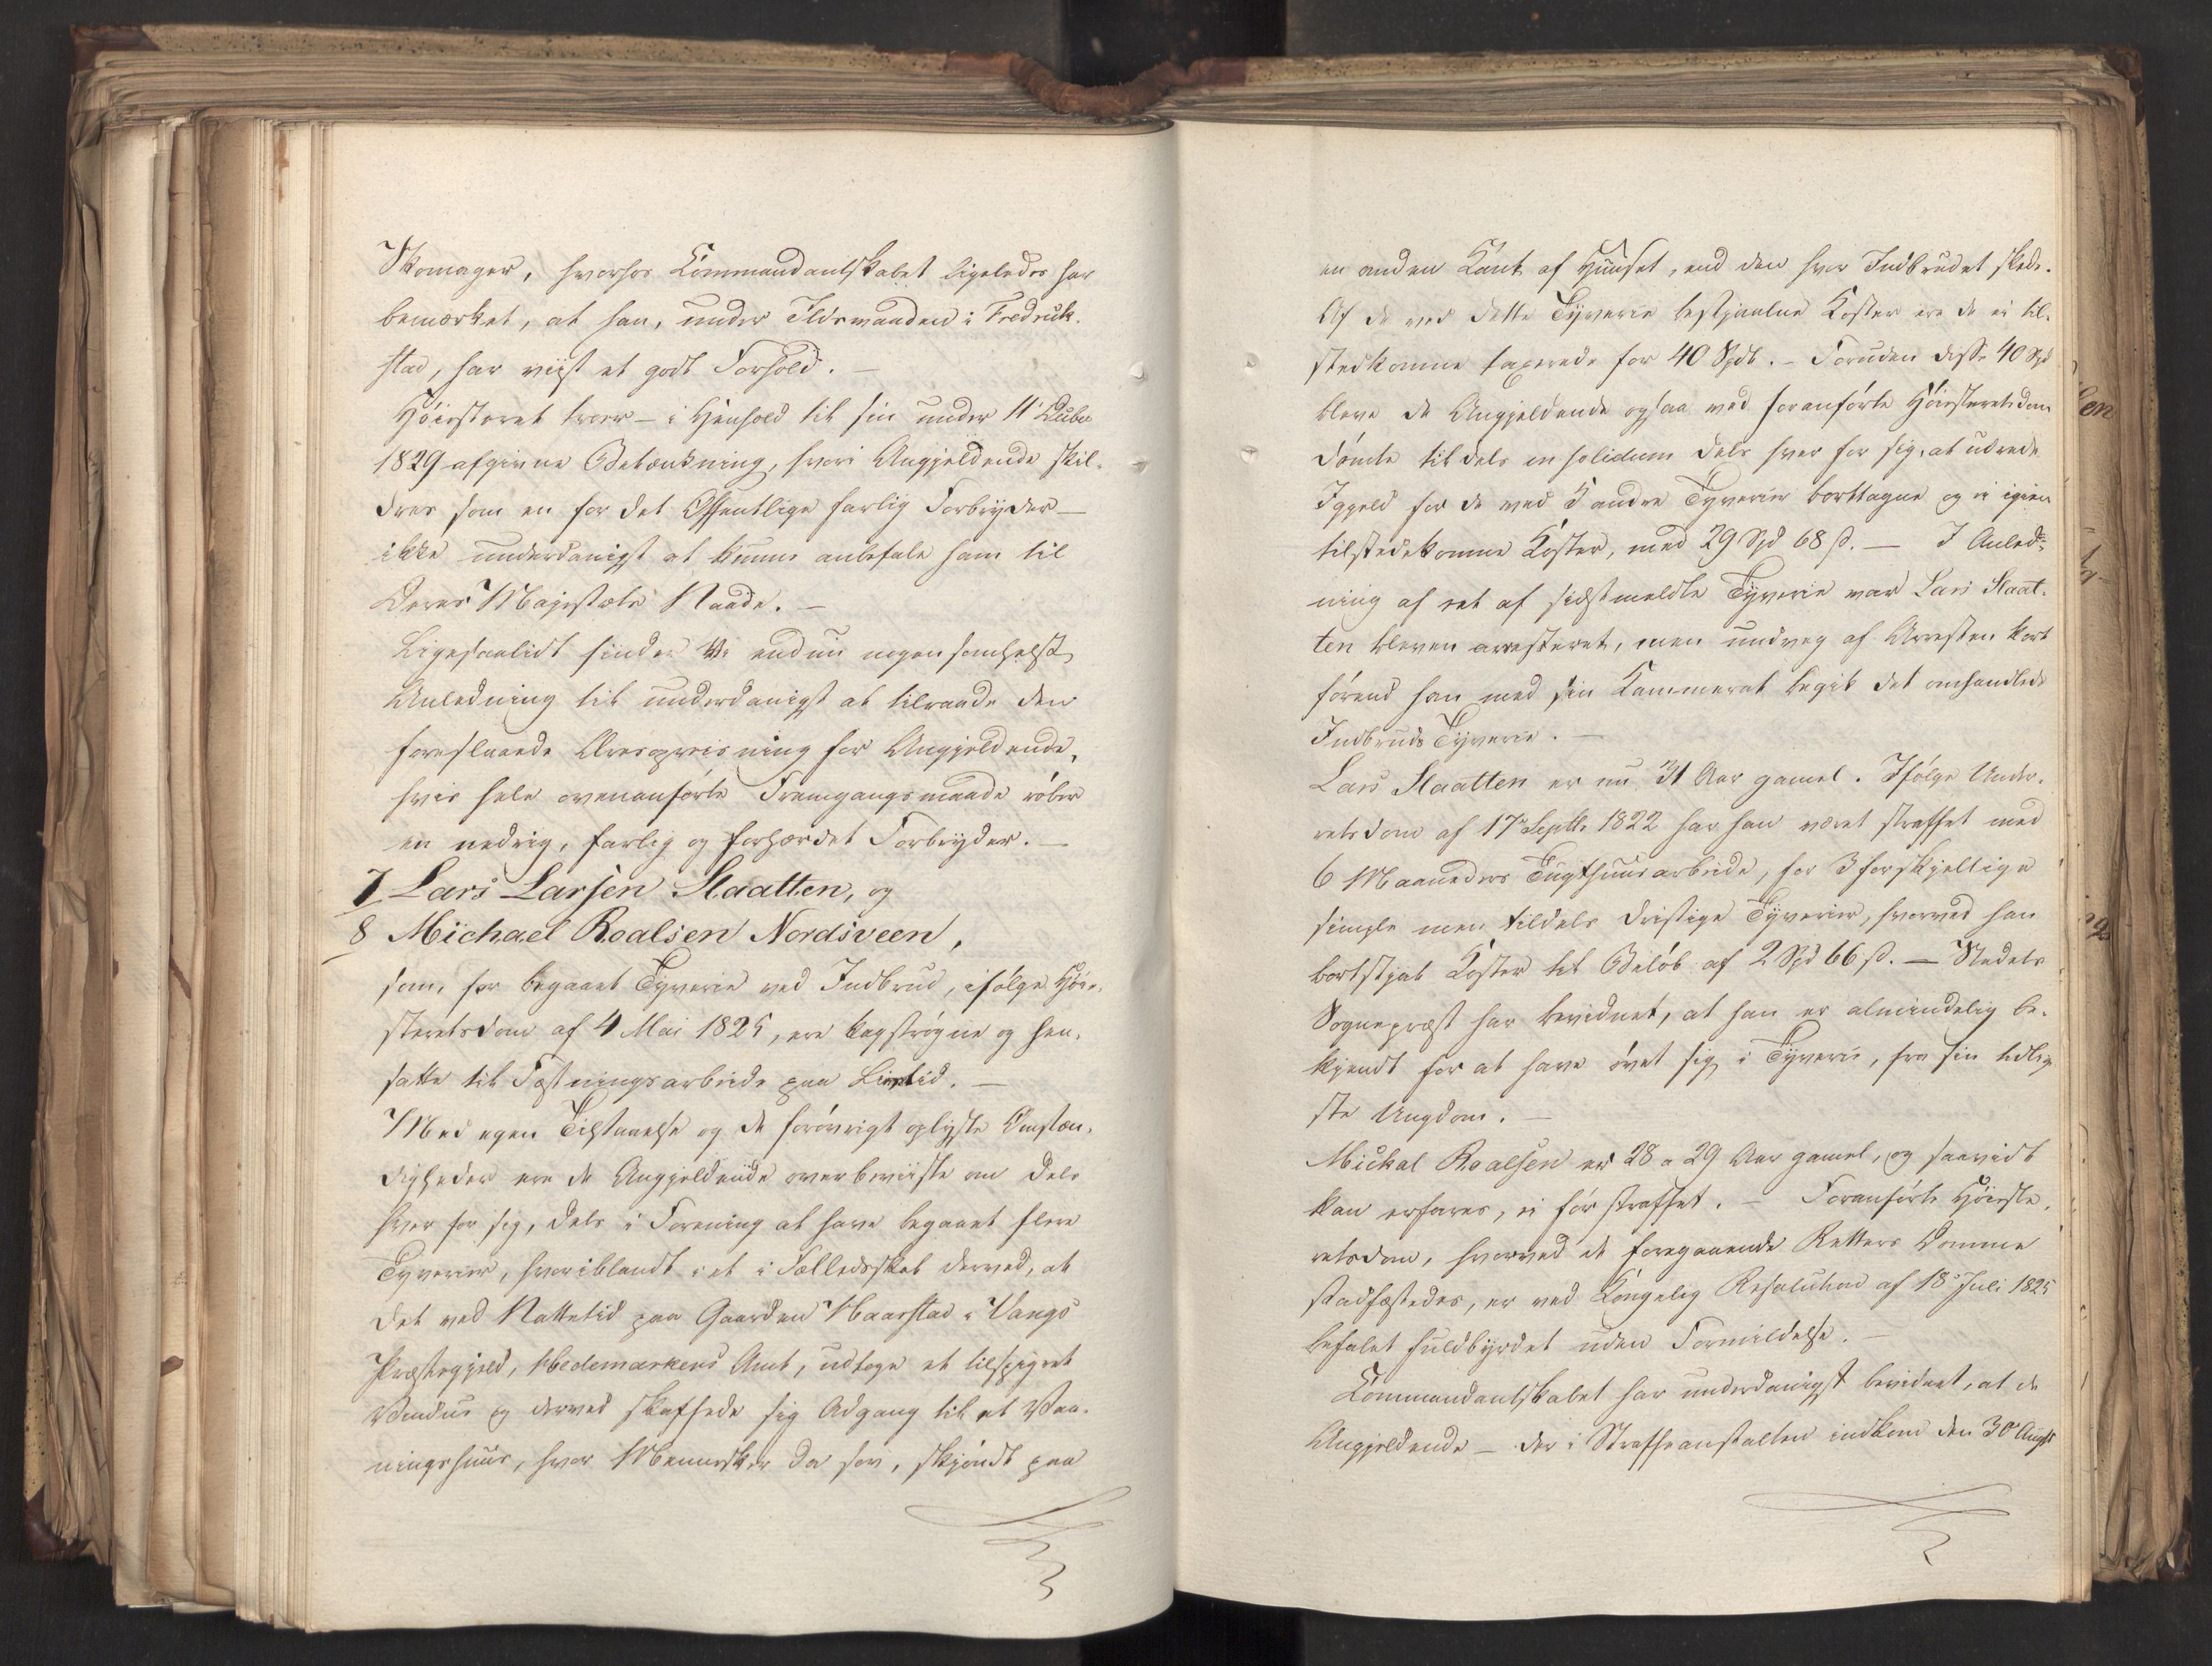 Skomager, hvorhos Kommandantskabet ligeledes har
bemærket, at han, under Ildsvaaden i Fredrik-
stad, har viist et godt Forhold. —
Høiesteret troer — i Henhold til sin under 11 Decbr
1829 afgivne Betænkning, hvori Angjeldende skil-
dres som en for det Offentlige farlig Forbryder —
ikke underdanigst at kunne anbefale ham til
Deres Majestæts Naade. —
Ligesaalidt finder Vi endnu nogensomhelst
Anledning til underdanigst at tilraade den
foreslaaede Æresopreisning for Angjeldende,
hvis hele ovenanførte Fremgangsmaade røber
en nedrig, farlig og forhærdet Forbryder. —
7 Lars Larsen Slaatten, og
8 Michael Roalsen Nordsveen,
som, for begaaet Tyverie ved Indbrud, ifølge Høie-
steretsdom af 4 Mai 1825, ere kagstrøgne og hen-
satte til Fæstningsarbeide paa Livstid. —
Ved egen Tilstaaelse og de forøvrigt oplyste Omstæn-
digheder ere de Angjeldende overbeviiste om dels
hver for sig, dels i Forening at have begaaet flere
Tyverier, hvoriblandt et i Fælledsskab derved, at
det ved Nattetid paa Gaarden Haarstad i Vangs
Præstegjeld, Hedemarkens Amt, udtoge et tilspigret
Vindue og derved skaffede sig Adgang til et Vaa-
ningshuus, hvor Mennesker da sov, skjøndt paa
en anden Kant af Huuset, end den hvor Indbrudet skede.
Af de ved dette Tyverie bestjaalne Koster ere de ei til-
stedkomne taxerede for 40 Spdl. — Foruden disse 40 Spd
bleve de Angjeldende ogsaa ved foranførte Høiesteretsdom
dømte til dels in solidum dels hver for sig, at udrede
Igjeld for de ved 5 andre Tyverier borttagne og ei igien
tilstedekomne Koster, med 29 Spd 68 ß. — I Anled-
ning af et af sidstmeldte Tyverie var Lars Slaat-
ten bleven arresteret, men undveg af Arresten kort
førend han med sin Kammerat begik det omhandlede
Indbruds Tyverie. —
Lars Slaatten er nu 31 Aar gamel. Ifølge Under-
retsdom af 17de Septbr 1822 har han været straffet med
6 Maaneders Tugthuusarbeide, for 3 forskjellige
simple men tildels dristige Tyverier, hvorved han
bortstjal Koster til Beløb af 2 Spd 66 ß. — Stedets
Sognepræst har bevidnet, at han er almindelig be-
kjendt for at have øvet sig i Tyverie, fra sin tidlig-
ste Ungdom. —
Mickal Roalsen er 28 a 29 Aar gamel, og saavidt
kan erfares, ei før straffet. — Foranførte Høieste-
retsdom, hvorved de foregaaende Retters Domme
stadfæstedes, er ved Kongelig Resolution af 18de Juli 1825
befalet fuldbyrdet uden Formildelse. —
Kommandantskabet har underdanigst bevidnet, at de
Angjeldende — der i Straffeanstalten indkom den 30te Augst